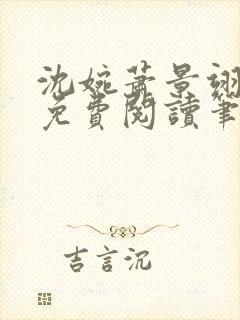 沈婉萧景翊
免費閱讀筆
吉言沉